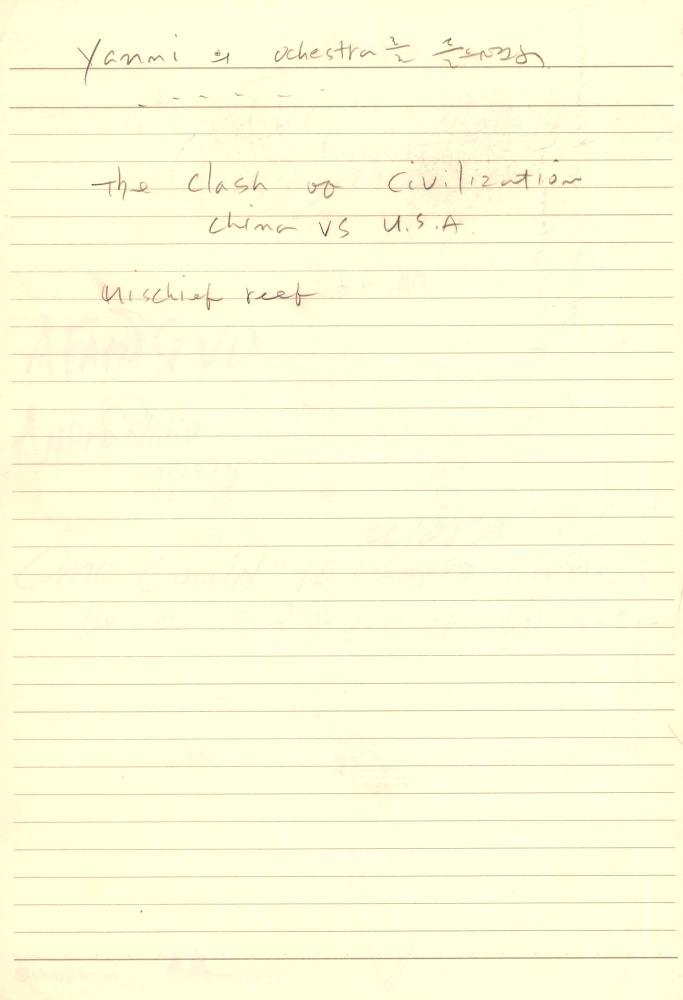 Yanni 의 ochestra 를
The Clash of Civilization
China VS U.S.A.
Mischief reef